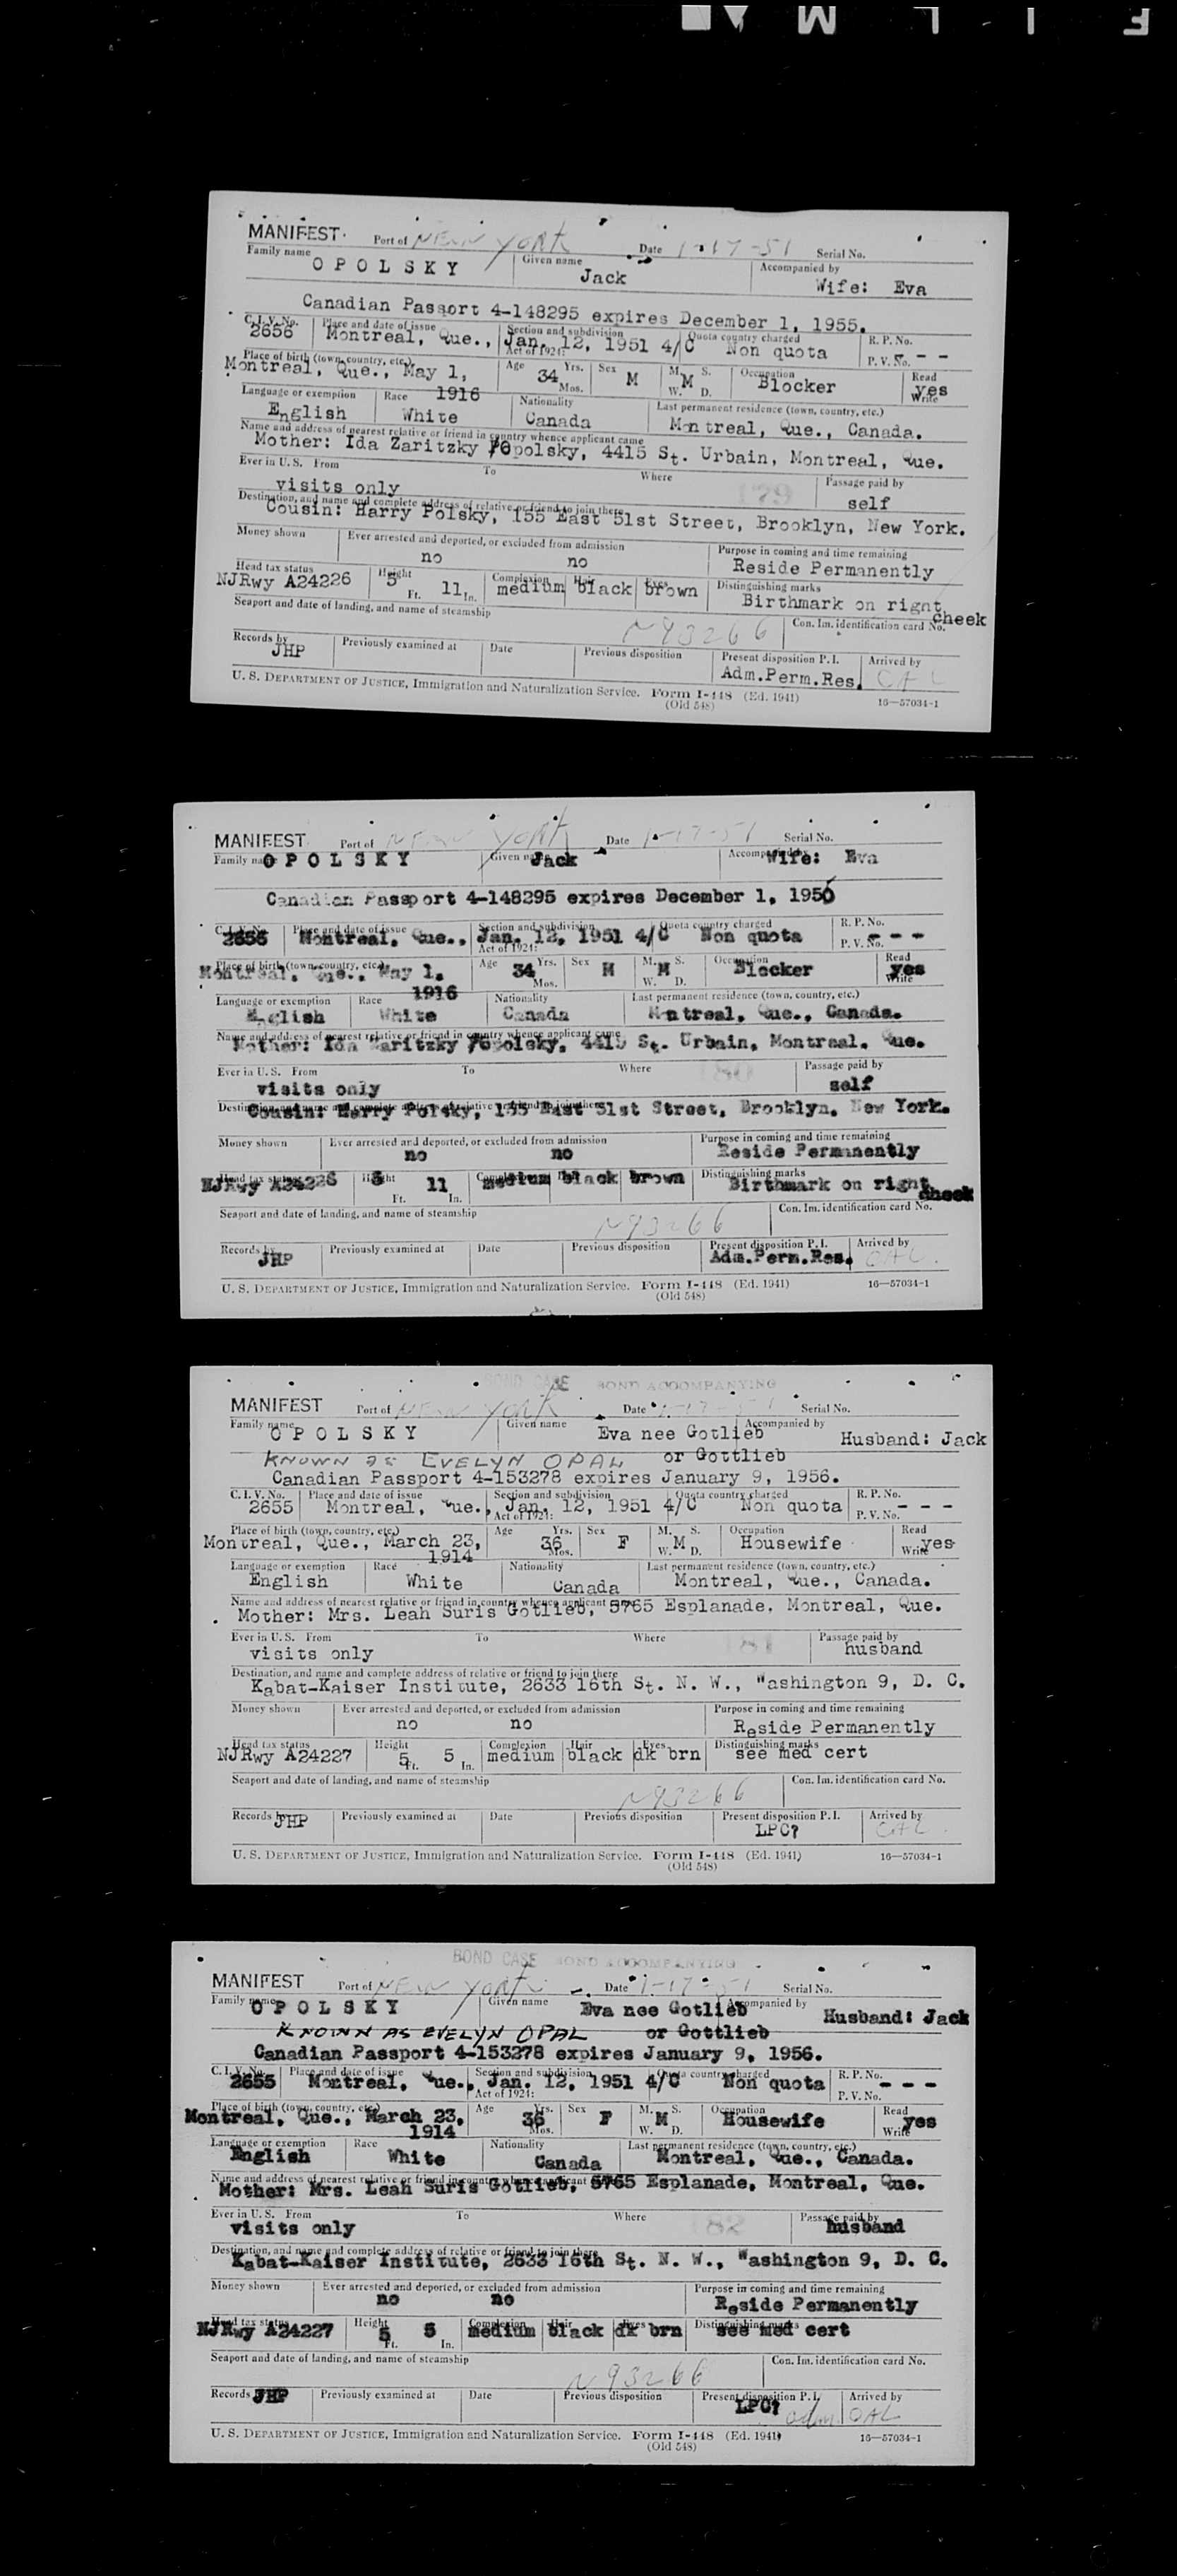 F I L M
MANIFEST Port of NEW YORK Date 1-17-51 Serial No.
Family name OPOLSKY Given name Jack Accompanied by Wife: Eva
Canadian Passort 4-148295 expires December 1, 1955.
C.I.V. No. 2656 Place and date of issue Montreal, Que., Jan. 12, 1951 Section and subdivision Act of 1924: 4/C Quota country charged Non quota R. P. No. P. V. No. - - -
Place of birth (town, country, etc.) Montreal, Que., May 1, 1916 Age 34 Yrs. Mos. Sex M M. S. W. D. M Occupation Blocker Read yes Write
Language or exemption English Race White Nationality Canada Last permanent residence (town, country, etc.) Montreal, Que., Canada.
Name and address of nearest relative or friend in country whence applicant came Mother: Ida Zaritzky /Opolsky, 4415 St. Urbain, Montreal, Que.
Ever in U. S. From visits only To Where 179 Passage paid by self
Destination, and name and complete address of relative or friend to join there Cousin: Harry Polsky, 155 East 51st Street, Brooklyn, New York.
Money shown Ever arrested and deported, or excluded from admission no no Purpose in coming and time remaining Reside Permanently
Head tax status NJRwy A24226 Height 5 Ft. 11 In. Complexion medium Hair black Eyes brown Distinguishing marks Birthmark on right cheek
Seaport and date of landing, and name of steamship N93266 Con. Im. identification card No.
Records by JHP Previously examined at Date Previous disposition Present disposition P. I. Adm.Perm.Res. Arrived by CAL
U. S. DEPARTMENT OF JUSTICE, Immigration and Naturalization Service. Form I-448 (Ed. 1941) 16—57034-1
(Old 548)
MANIFEST Port of NEW YORK Date 1-17-51 Serial No.
Family name OPOLSKY Given name Jack Accompanied by Wife: Eva
Canadian Passport 4-148295 expires December 1, 1956
C.I.V. No. 2656 Place and date of issue Montreal, Que., Jan. 12, 1951 Section and subdivision Act of 1924: 4/C Quota country charged Non quota R. P. No. P. V. No. - - -
Place of birth (town, country, etc.) Montreal, Que., May 1, 1916 Age 34 Yrs. Mos. Sex M M. S. W. D. M Occupation Blocker Read yes Write
Language or exemption English Race White Nationality Canada Last permanent residence (town, country, etc.) Montreal, Que., Canada.
Name and address of nearest relative or friend in country whence applicant came Mother: Ida Zaritzky /Opolsky, 4415 St. Urbain, Montreal, Que.
Ever in U. S. From visits only To Where 180 Passage paid by self
Destination, and name and complete address of relative or friend to join there Cousin: Harry Polsky, 155 East 51st Street, Brooklyn, New York.
Money shown Ever arrested and deported, or excluded from admission no no Purpose in coming and time remaining Reside Permanently
Head tax status NJRwy A24226 Height 5 Ft. 11 In. Complexion medium Hair black brown Distinguishing marks Birthmark on right cheek
Seaport and date of landing, and name of steamship N93266 Con. Im. identification card No.
Records by JHP Previously examined at Date Previous disposition Present disposition P. I. Adm.Perm.Res. Arrived by CAL.
U. S. DEPARTMENT OF JUSTICE, Immigration and Naturalization Service. Form I-448 (Ed. 1941) 16—57034-1
(Old 548)
BOND CASE BOND ACCOMPANYING
MANIFEST Port of NEW YORK Date 1-17-51 Serial No.
Family name OPOLSKY Given name Eva nee Gotlieb Accompanied by Husband: Jack
KNOWN as EVELYN OPAL or Gottlieb
Canadian Passport 4-153278 expires January 9, 1956.
C. I. V. No. 2655 Place and date of issue Montreal, Que., Jan. 12, 1951 Section and subdivision Act of 1924: 4/C Quota country charged Non quota R. P. No. P. V. No. - - -
Place of birth (town, country, etc.) Montreal, Que., March 23, 1914 Age 36 Yrs. Mos. Sex F M. S. W. D. M Occupation Housewife Read yes Write
Language or exemption English Race White Nationality Canada Last permanent residence (town, country, etc.) Montreal, Que., Canada.
Name and address of nearest relative or friend in country whence applicant came Mother: Mrs. Leah Suris Gotlieb, 5765 Esplanade, Montreal, Que.
Ever in U. S. From visits only To Where 181 Passage paid by husband
Destination, and name and complete address of relative or friend to join there Kabat-Kaiser Institute, 2633 16th St. N. W., Washington 9, D. C.
Money shown Ever arrested and deported, or excluded from admission no no Purpose in coming and time remaining Reside Permanently
Head tax status NJRwy A24227 Height 5 Ft. 5 In. Complexion medium Hair black Eyes dk brn Distinguishing marks see med cert
Seaport and date of landing, and name of steamship N93266 Con. Im. identification card No.
Records by JHP Previously examined at Date Previous disposition Present disposition P. I. LPC? Arrived by CAL.
U. S. DEPARTMENT OF JUSTICE, Immigration and Naturalization Service. Form I-448 (Ed. 1941) 16—57034-1
(Old 548)
BOND CASE BOND ACCOMPANYING
MANIFEST Port of NEW YORK Date 1-17-51 Serial No.
Family name OPOLSKY Given name Eva nee Gotlieb Accompanied by Husband: Jack
KNOWN AS EVELYN OPAL or Gottlieb
Canadian Passport 4-153278 expires January 9, 1956.
C. I. V. No. 2655 Place and date of issue Montreal, Que., Jan. 12, 1951 Section and subdivision Act of 1924: 4/C Quota country charged Non quota R. P. No. P. V. No. - - -
Place of birth (town, country, etc.) Montreal, Que., March 23, 1914 Age 36 Yrs. Mos. Sex F M. S. W. D. M Occupation Housewife Read yes Write
Language or exemption English Race White Nationality Canada Last permanent residence (town, country, etc.) Montreal, Que., Canada.
Name and address of nearest relative or friend in country whence applicant came Mother: Mrs. Leah Suris Gotlieb, 5765 Esplanade, Montreal, Que.
Ever in U. S. From visits only To Where 182 Passage paid by husband
Destination, and name and complete address of relative or friend to join there Kabat-Kaiser Institute, 2633 16th St. N. W., Washington 9, D. C.
Money shown Ever arrested and deported, or excluded from admission no no Purpose in coming and time remaining Reside Permanently
Head tax status NJRwy A24227 Height 5 Ft. 5 In. Complexion medium Hair black Eyes dk brn Distinguishing marks see med cert
Seaport and date of landing, and name of steamship N93266 Con. Im. identification card No.
Records JHP Previously examined at Date Previous disposition Present disposition P. I. LPC? adm. Arrived by CAL
U. S. DEPARTMENT OF JUSTICE, Immigration and Naturalization Service. Form I-448 (Ed. 1941) 16—57034-1
(Old 548)